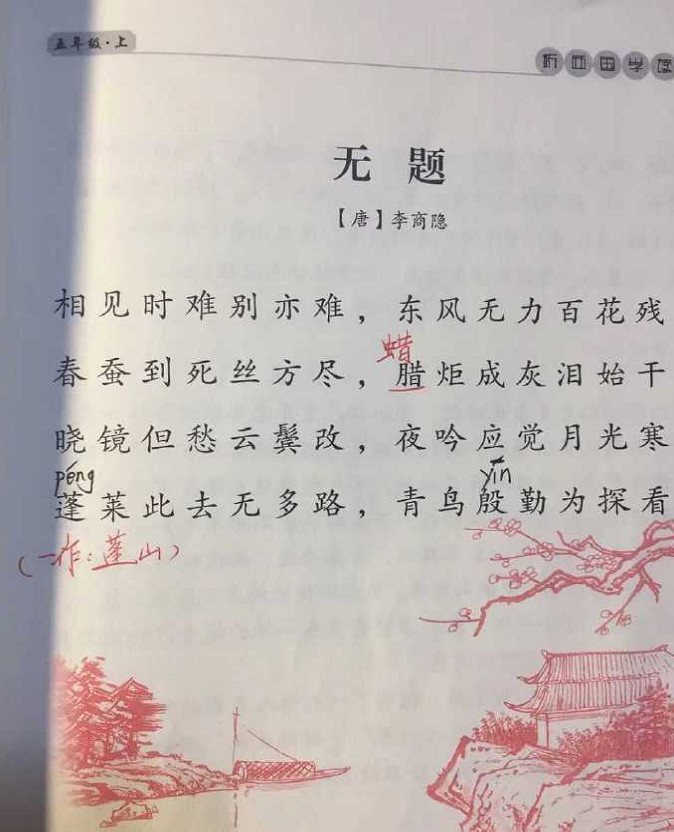 五年级·上
无题
【唐】李商隐
相见时难别亦难，东风无力百花残
蜡
春蚕到死丝方尽，腊炬成灰泪始干
晓镜但愁云鬓改，夜吟应觉月光寒
péng yīn
蓬莱此去无多路，青鸟殷勤为探看
（一作：蓬山）